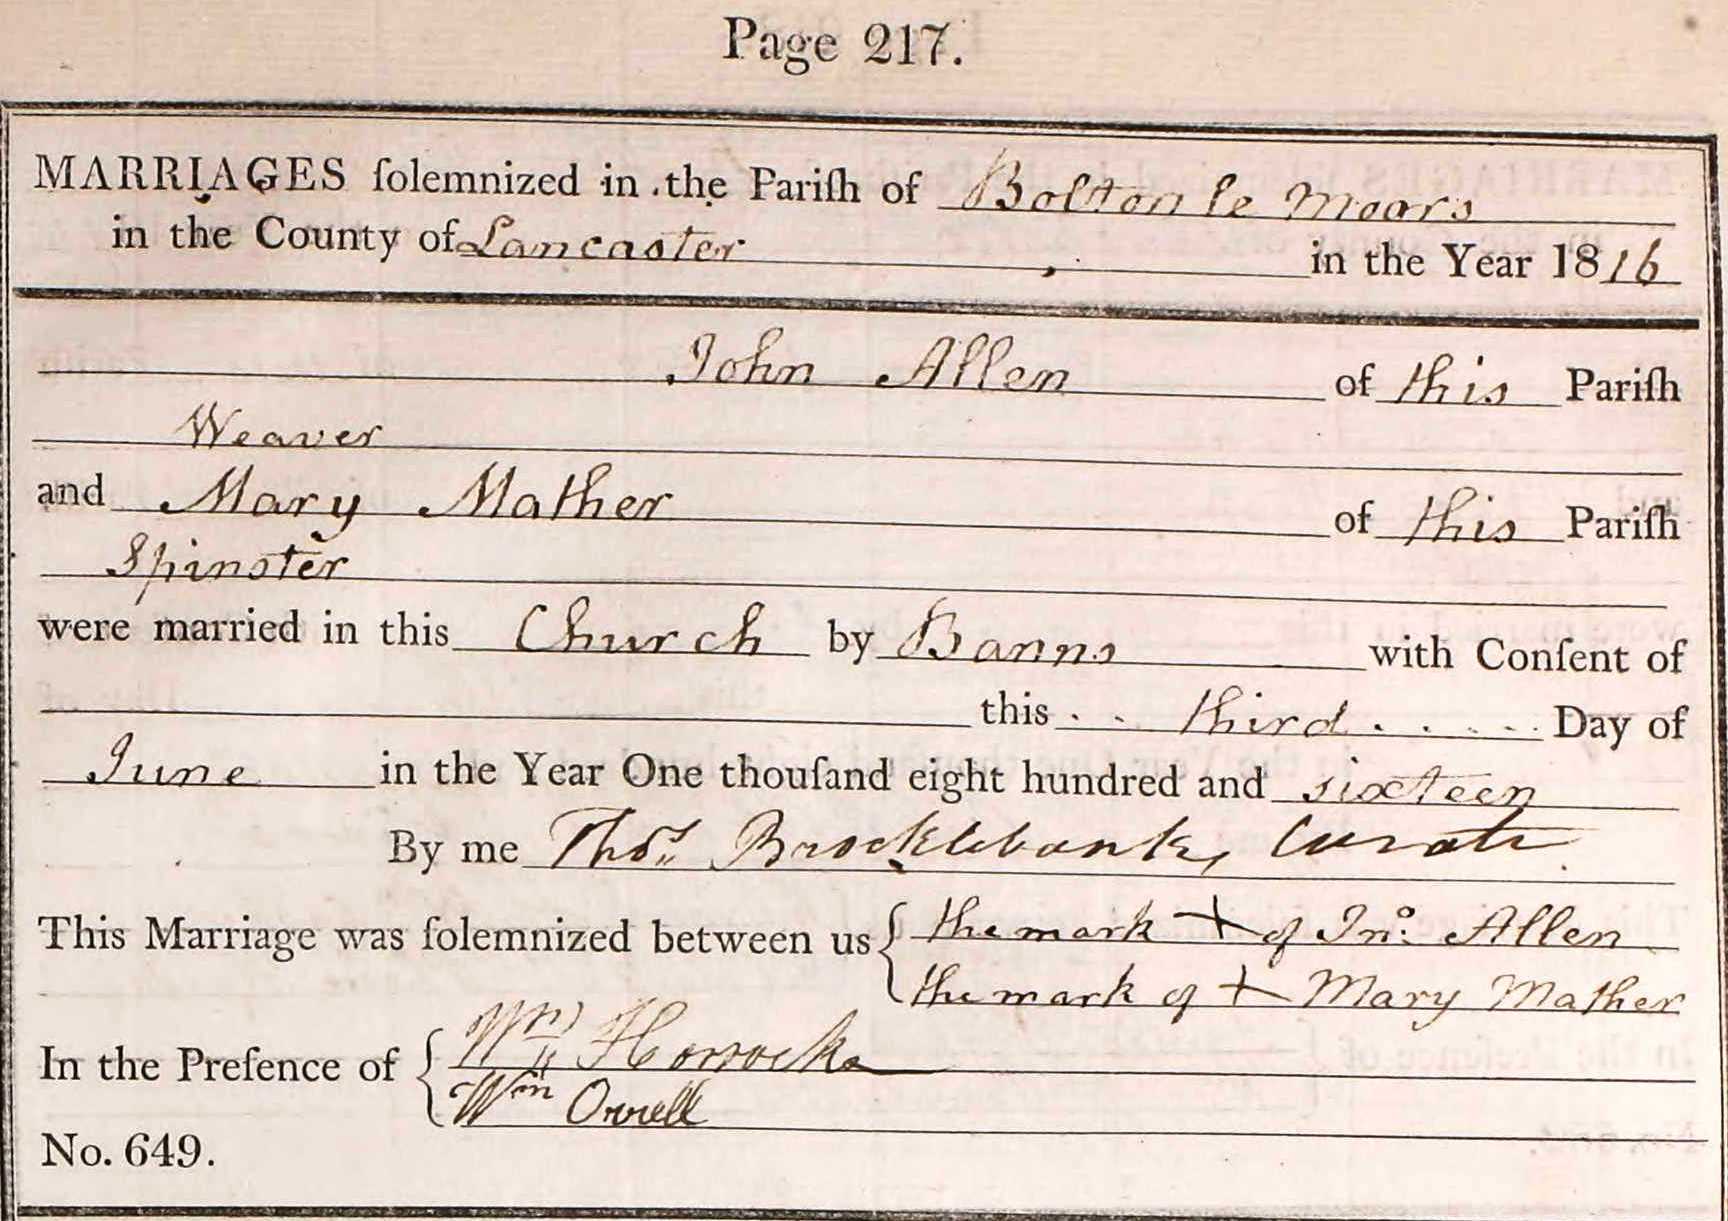 Page 217.
MARRIAGES ſolemnized in the Pariſh of Bolton le Moors
in the County of Lancaster in the Year 1816
John Allen of this Pariſh
Weaver
and Mary Mather of this Pariſh
Spinster
were married in this Church by Banns with Conſent of
this . . third . . . . . Day of
June in the Year One thouſand eight hundred and sixteen
By me Thos. Brocklebank, Curate
This Marriage was ſolemnized between us { the mark + of Jno: Allen
the mark of + Mary Mather
In the Preſence of { Wm Horrocks
Wm Orrell
No. 649.